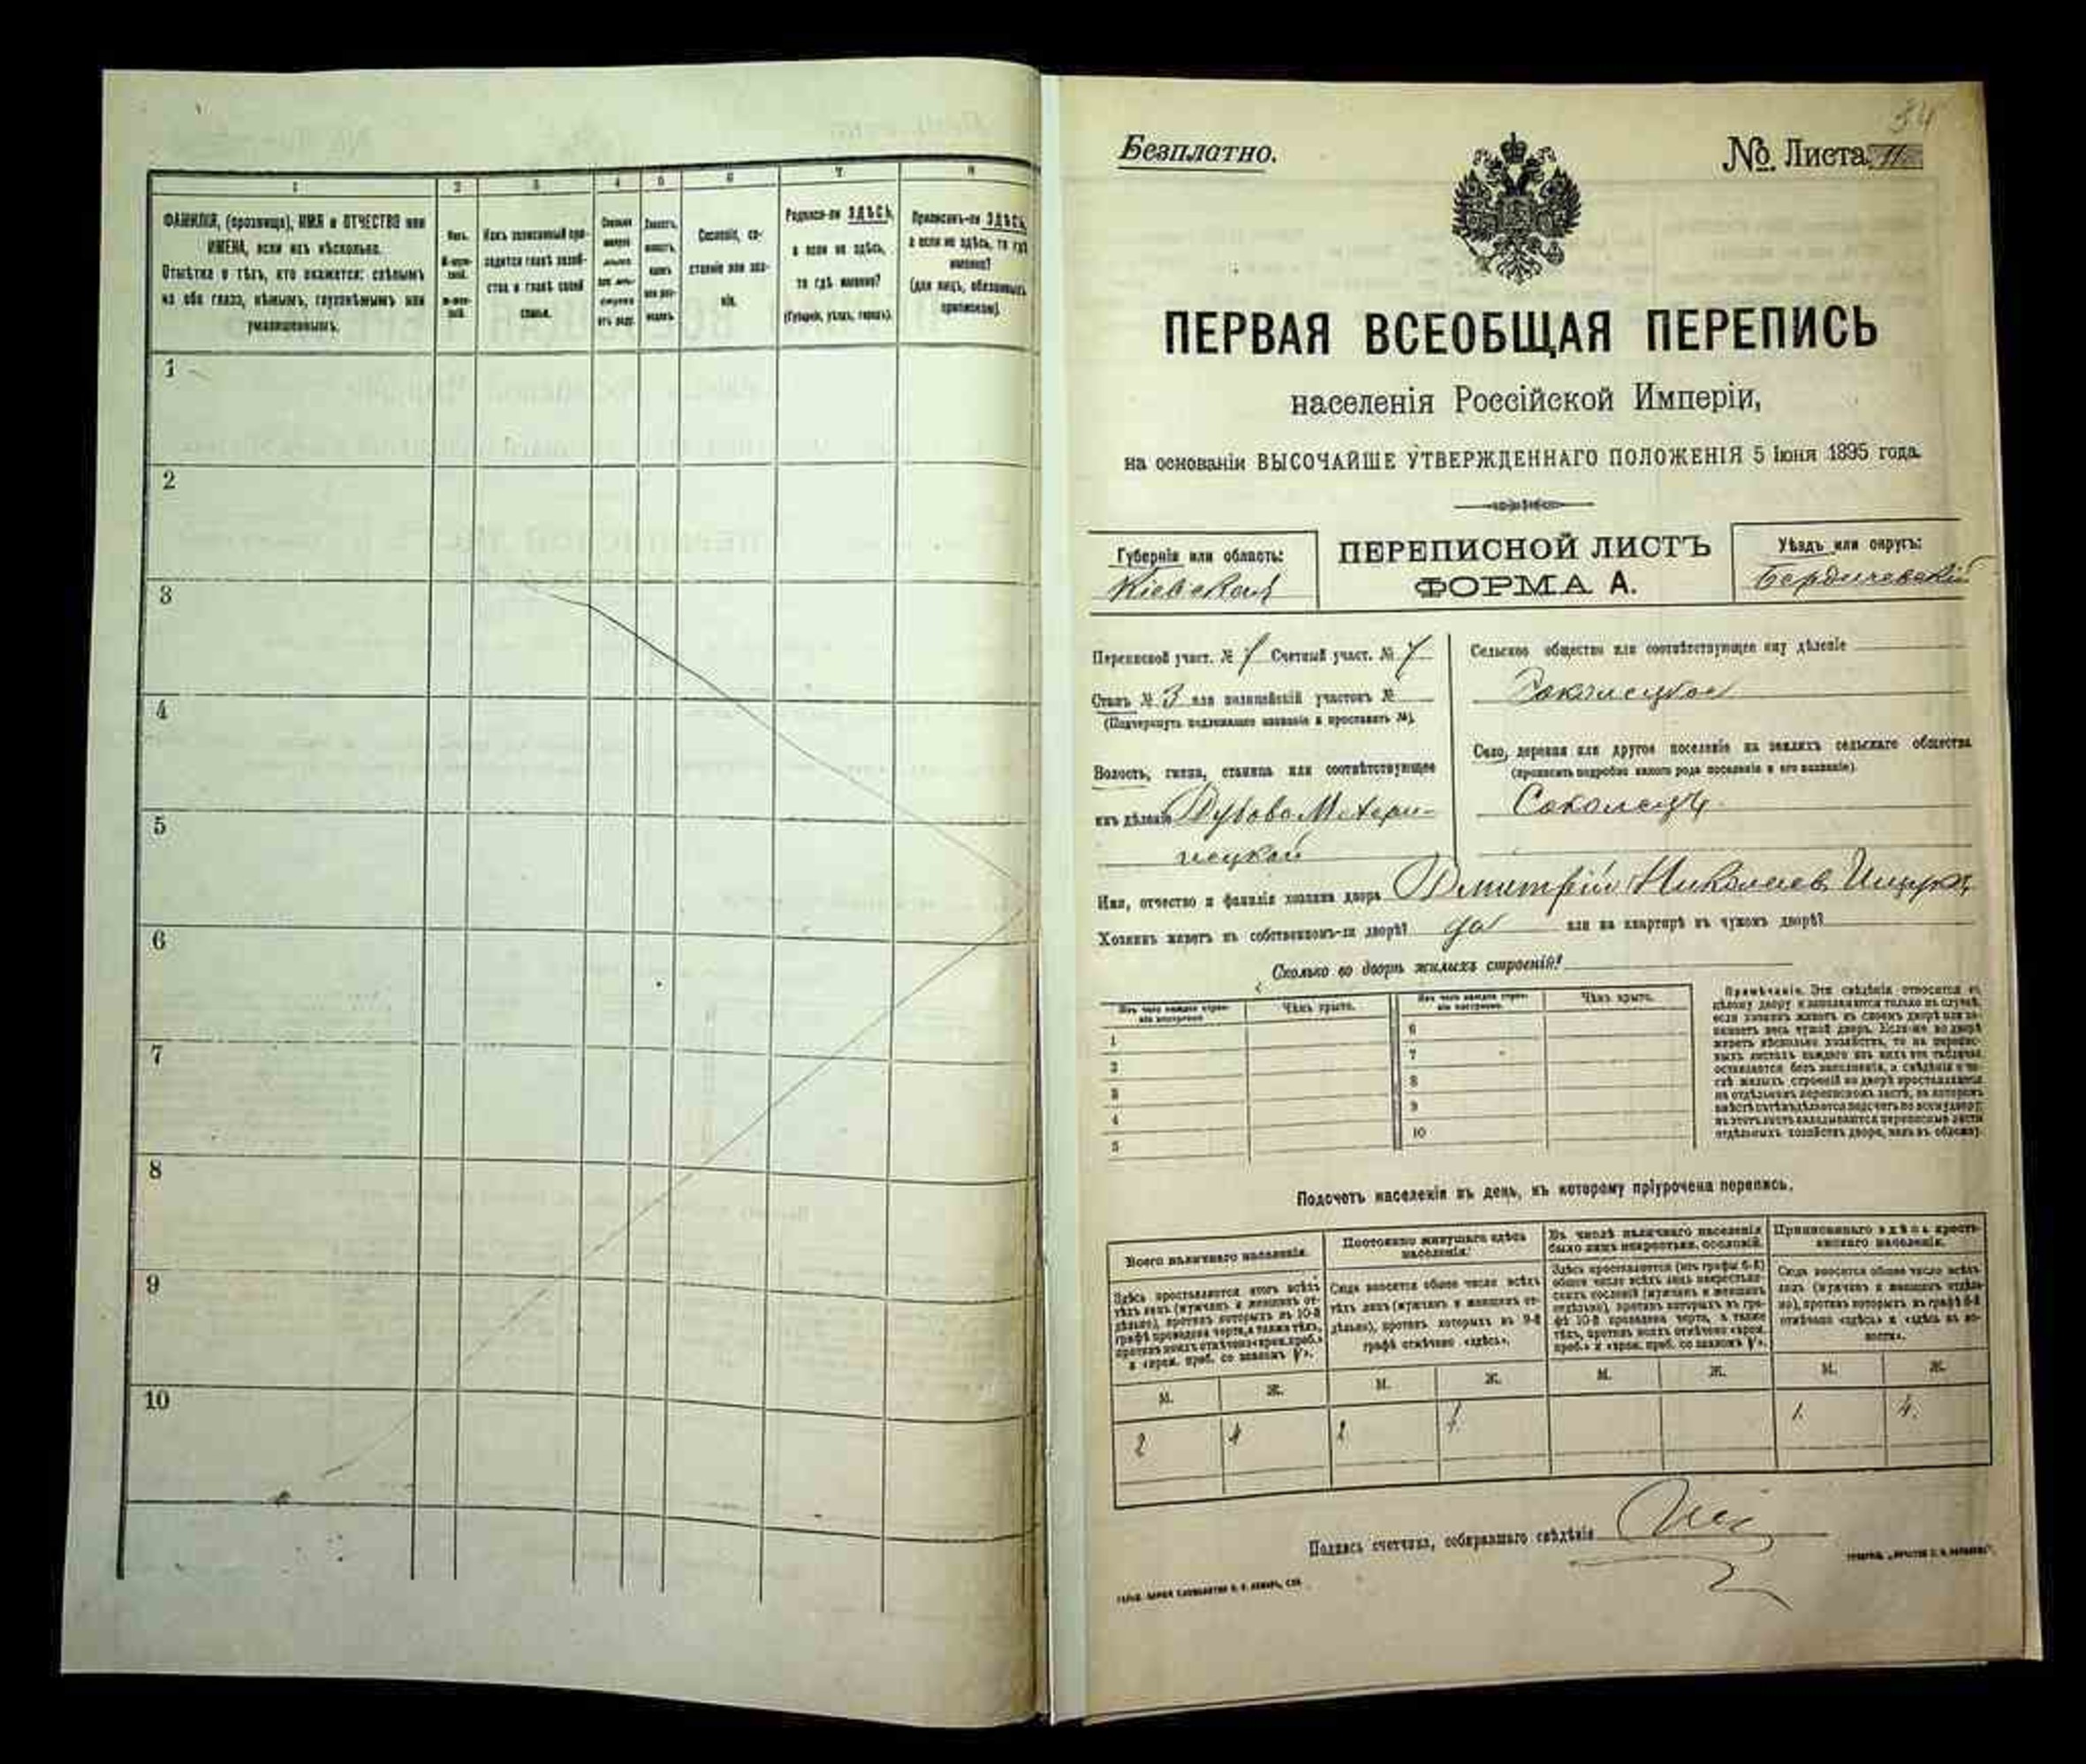 1
2
3
4
5
6
7
8
ФАМИЛІЯ, (прозвище), ИМЯ и ОТЧЕСТВО или
ИМЕНА, если ихъ нѣсколько.
Отмѣтка о тѣхъ, кто окажется: слѣпымъ
на оба глаза, нѣмымъ, глухонѣмымъ или
умалишеннымъ.
Полъ.
Какъ записанный при-
ходится главѣ хозяй-
ства и главѣ своей
семьи.
Сословіе, со-
стояніе или зва-
ніе.
Родился-ли ЗДѢСЬ,
а если не здѣсь,
то гдѣ именно?
(Губернія, уѣздъ, городъ).
Приписанъ-ли ЗДѢСЬ,
а если не здѣсь, то гдѣ
именно?
(для лицъ, обязанныхъ
припискою).
1
2
3
4
5
6
7
8
9
10
34
Безплатно.
№ Листа 11
ПЕРВАЯ ВСЕОБЩАЯ ПЕРЕПИСЬ
населенія Россійской Имперіи,
на основаніи ВЫСОЧАЙШЕ УТВЕРЖДЕННАГО ПОЛОЖЕНІЯ 5 Іюня 1895 года.
Губернія или область:
Кіевская
ПЕРЕПИСНОЙ ЛИСТЪ
ФОРМА А.
Уѣздъ или округъ:
Бердичевскій
Переписной участ. № 1 Счетный участ. № 7
Станъ № 3 или полицейскій участокъ №
(Подчеркнуть подлежащее названіе и проставить №).
Волость, гмина, станица или соотвѣтствующее
имъ дѣленіе Дубово Махари-
нецкой
Сельское общество или соотвѣтствующее ему дѣленіе
Соколецкое
Село, деревня или другое поселеніе на земляхъ сельскаго общества
(прописать подробно какого рода поселеніе и его названіе).
Соколецъ
Имя, отчество и фамилія хозяина двора Дмитрій Николаев Ищукъ
Хозяинъ живетъ въ собственномъ-ли дворѣ? да или на квартирѣ въ чужомъ дворѣ?
Сколько во дворѣ жилыхъ строеній?
Изъ чего каждое строе-
ніе построено.
Чѣмъ крыто.
Изъ чего каждое строе-
ніе построено.
Чѣмъ крыто.
1
2
3
4
5
6
7
8
9
10
Примѣчаніе. Эти свѣдѣнія относятся къ
цѣлому двору и заполняются только въ случаѣ,
если хозяинъ живетъ въ своемъ дворѣ или за-
нимаетъ весь чужой дворъ. Если-же во дворѣ
живетъ нѣсколько хозяйствъ, то на перепис-
ныхъ листахъ каждаго изъ нихъ эта табличка
оставляется безъ заполненія, а свѣдѣнія о чи-
слѣ жилыхъ строеній во дворѣ проставляются
на отдѣльномъ переписномъ листѣ, на которомъ
вмѣстѣ съ тѣмъ дѣлается подсчетъ по всему двору;
въ этотъ листъ вкладываются переписные листы
отдѣльныхъ хозяйствъ двора, какъ въ обложку.
Подсчетъ населенія въ день, къ которому пріурочена перепись.
Всего наличнаго населенія.
Здѣсь проставляется итогъ всѣхъ
тѣхъ лицъ (мужчинъ и женщинъ от-
дѣльно), противъ которыхъ въ 10-й
графѣ проведена черта, а также тѣхъ,
противъ коихъ отмѣчено «врем. преб.»
и «врем. преб. со знакомъ V».
Постоянно живущаго здѣсь
населенія:
Сюда вносится общее число всѣхъ
тѣхъ лицъ (мужчинъ и женщинъ от-
дѣльно), противъ которыхъ въ 9-й
графѣ отмѣчено «здѣсь».
Въ числѣ наличнаго населенія
было лицъ некрестьян. сословій.
Здѣсь проставляется (изъ графы 6-й)
общее число всѣхъ лицъ некрестьян-
скихъ сословій (мужчинъ и женщинъ
отдѣльно), противъ которыхъ въ гра-
фѣ 10-й проведена черта, а также
тѣхъ, противъ коихъ отмѣчено «врем.
преб.» и «врем. преб. со знакомъ V».
Приписаннаго здѣсь кресть-
янскаго населенія.
Сюда вносится общее число всѣхъ
лицъ (мужчинъ и женщинъ отдѣль-
но), противъ которыхъ въ графѣ 8-й
отмѣчено «здѣсь» и «здѣсь въ во-
лости».
М. Ж. М. Ж. М. Ж. М. Ж.
2 4 2 4. 1. 4.
Подпись счетчика, собиравшаго свѣдѣнія